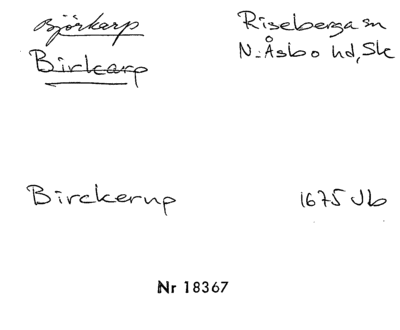 Björkarp
Birkarp
Riseberga sn
N. Åsbo hd, Sk
Birckerup
1675 Jb
Nr 18367